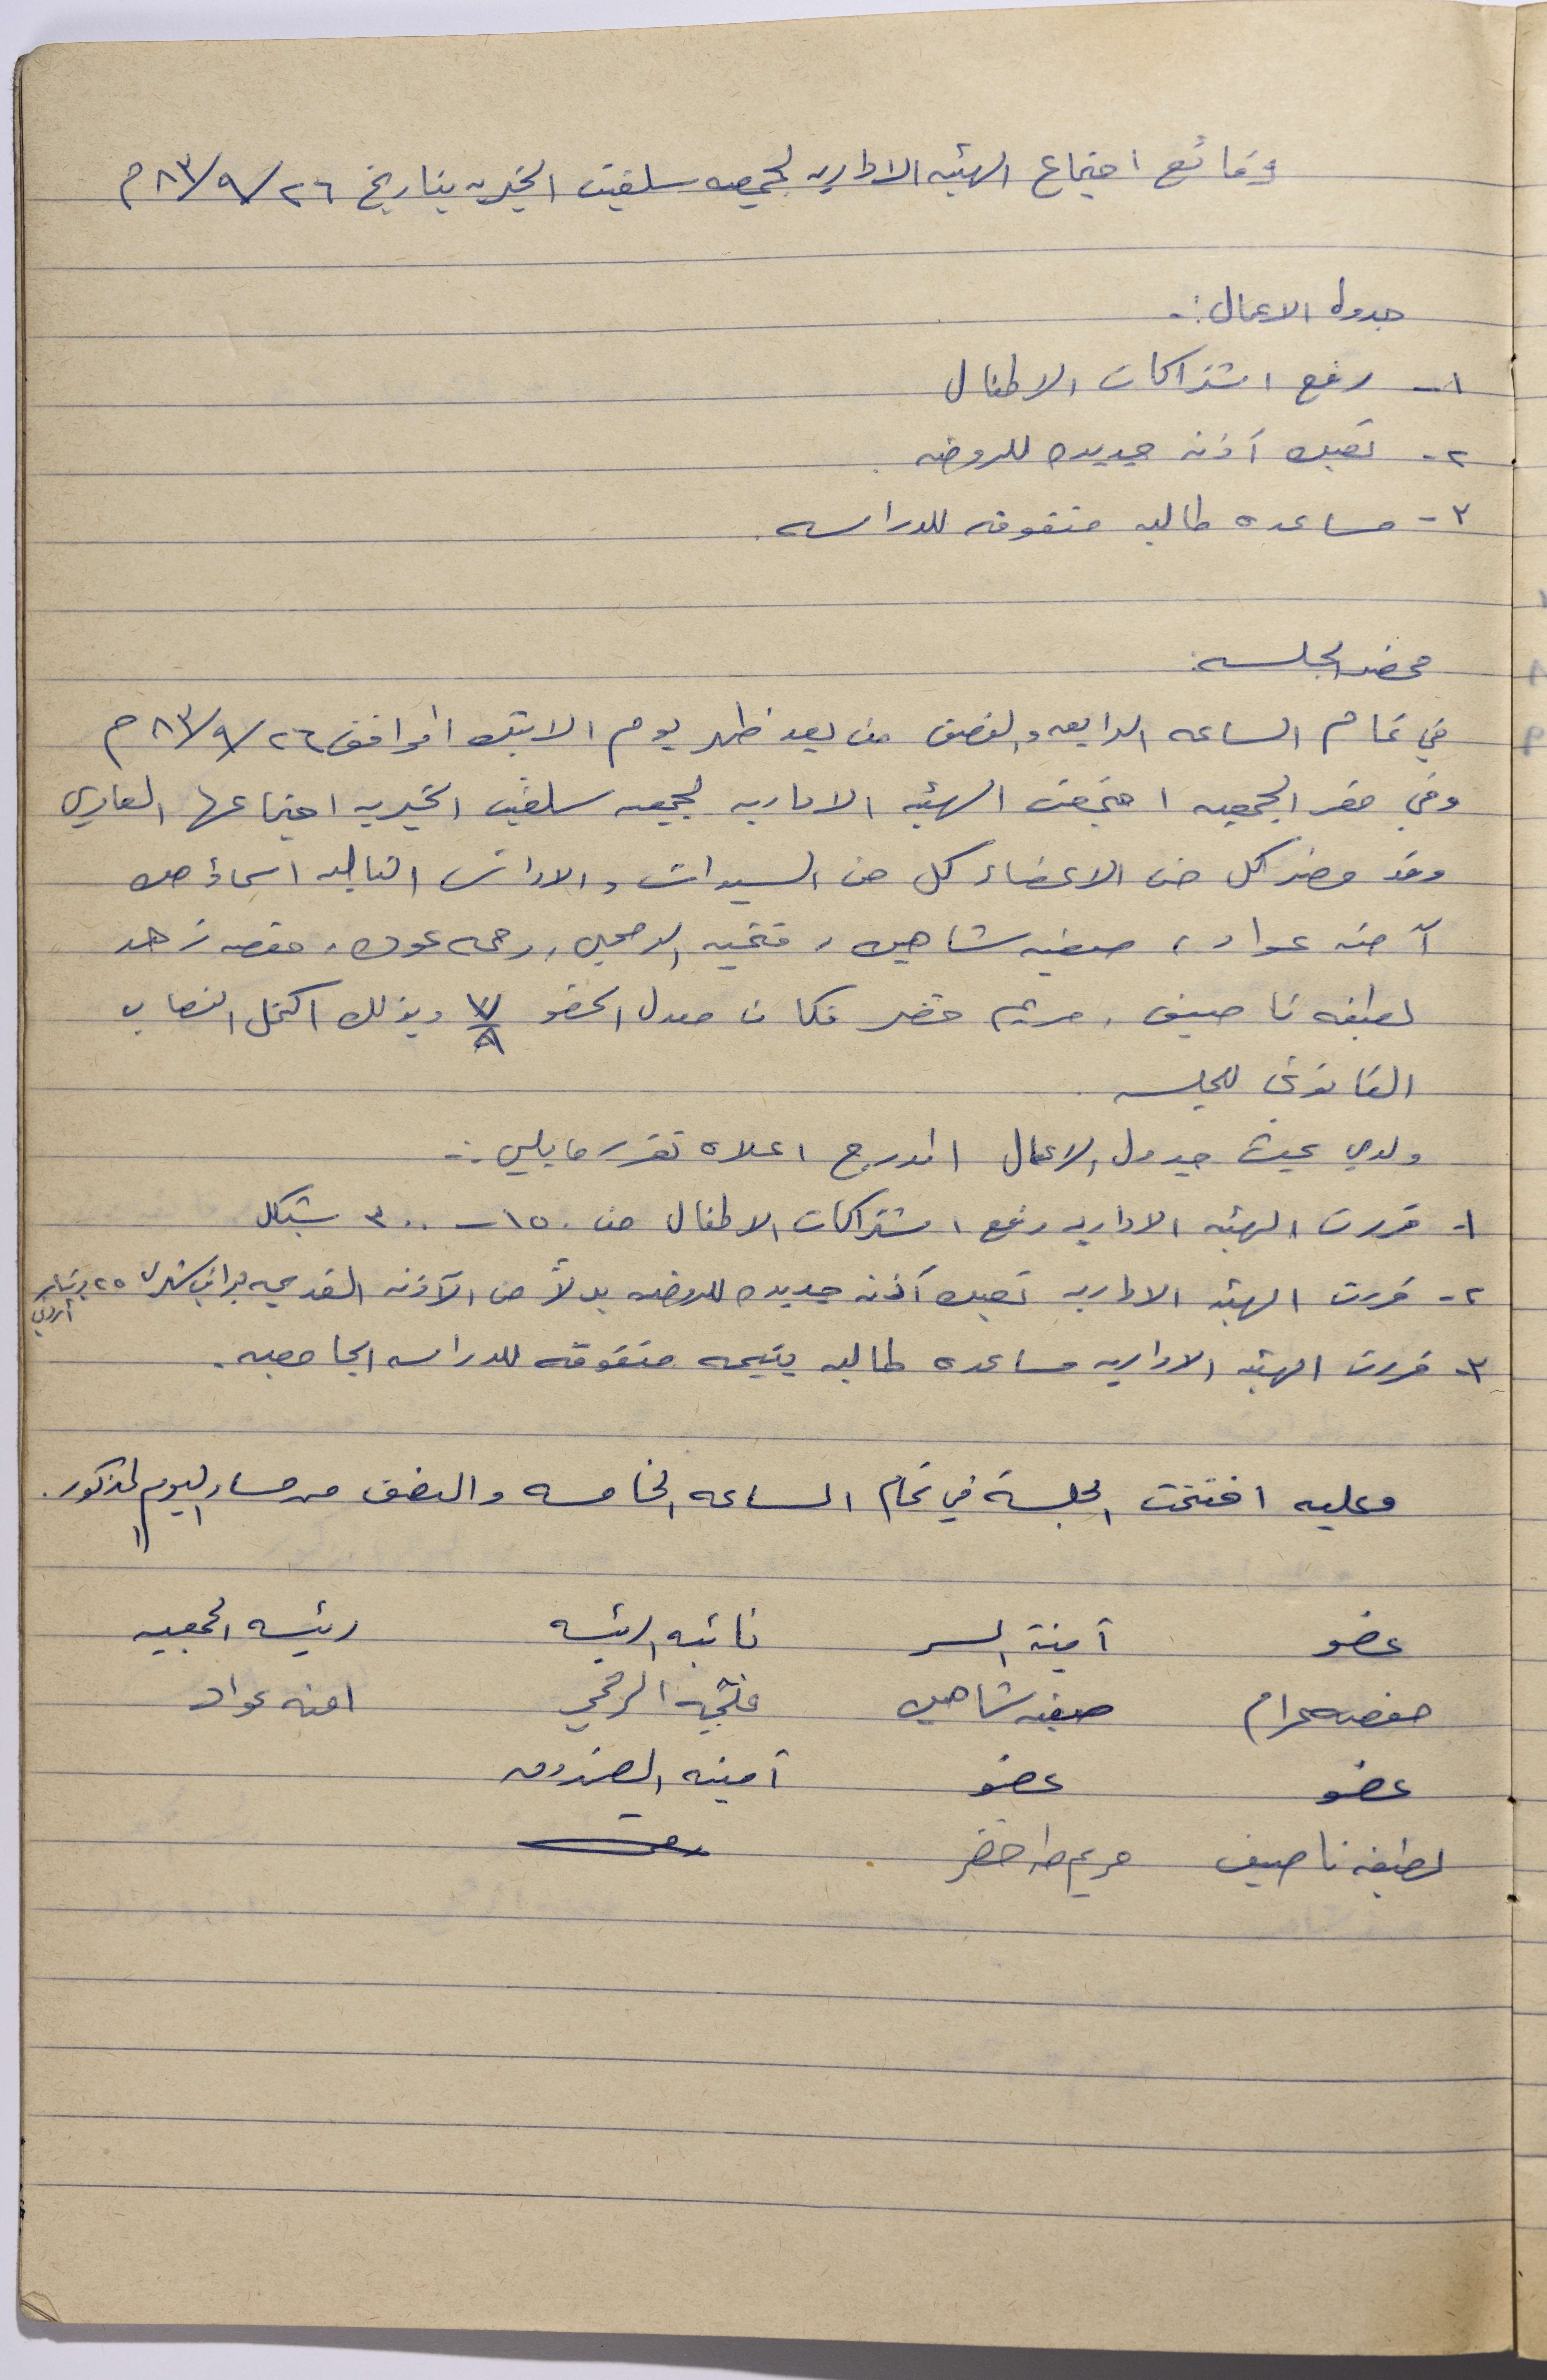 وقائع اجتماع الهيئه الاداريه لجمعيه سلفيت الخيريه بتاريخ ٢٦/٩/٨٣م
جدول الاعمال :-
١- رفع اشتراكات الاطفال
٢- تعيين آذنه جديده للروضه .
٣- مساعده طالبه متفوقه للدراسه .
محضر الجلسه :
في تمام الساعه الرابعه والنصف من بعد ظهر يوم الاثنين الموافق ٢٦/٩/٨٣م
وفي مقر الجمعيه اجتمعت الهيئه الاداريه لجمعيه سلفيت الخيريه اجتماعها العادي
وقد حضر كل من الاعضاء كل من السيدات والاوانس التاليه اسماؤهن
آمنه عواد ، صفيه شاهين ، فتحيه الرمحي ، رحمه عودة ، حفصه زهد
لطيفه ناصيف ، مريم خضر فكان معدل الحضو ٧/٩ وبذلك اكتمل النصاب
القانوني للجلسه .
ولدي بحث جدول الاعمال المدرج اعلاه تقرر مايلي :-
١- قررت الهيئه الاداريه رفع اشتراكات الاطفال من ١٥٠ - ٣٠٠ شيكل
٢- قررت الهيئه الاداريه تعيين آذنه جديده للروضه بدلاً من الآذنه القديمه براتب شهري ٢٥ دينار
أردني
٣- قررت الهيئه الاداريه مساعده طالبه يتيمه متفوقه للدراسه الجامعيه .
وعليه اختتمت الجلسة في تمام الساعه الخامسه والنصف من مساء اليوم المذكور .
عضو آمينة السر نائبه الرئيسه رئيسه الجمعيه
حفصه صفيه شاهين فتحيه الرمحي امنه عواد
عضو عضو آمينه الصندوق
لطيفه ناصيف مريم طه خضر